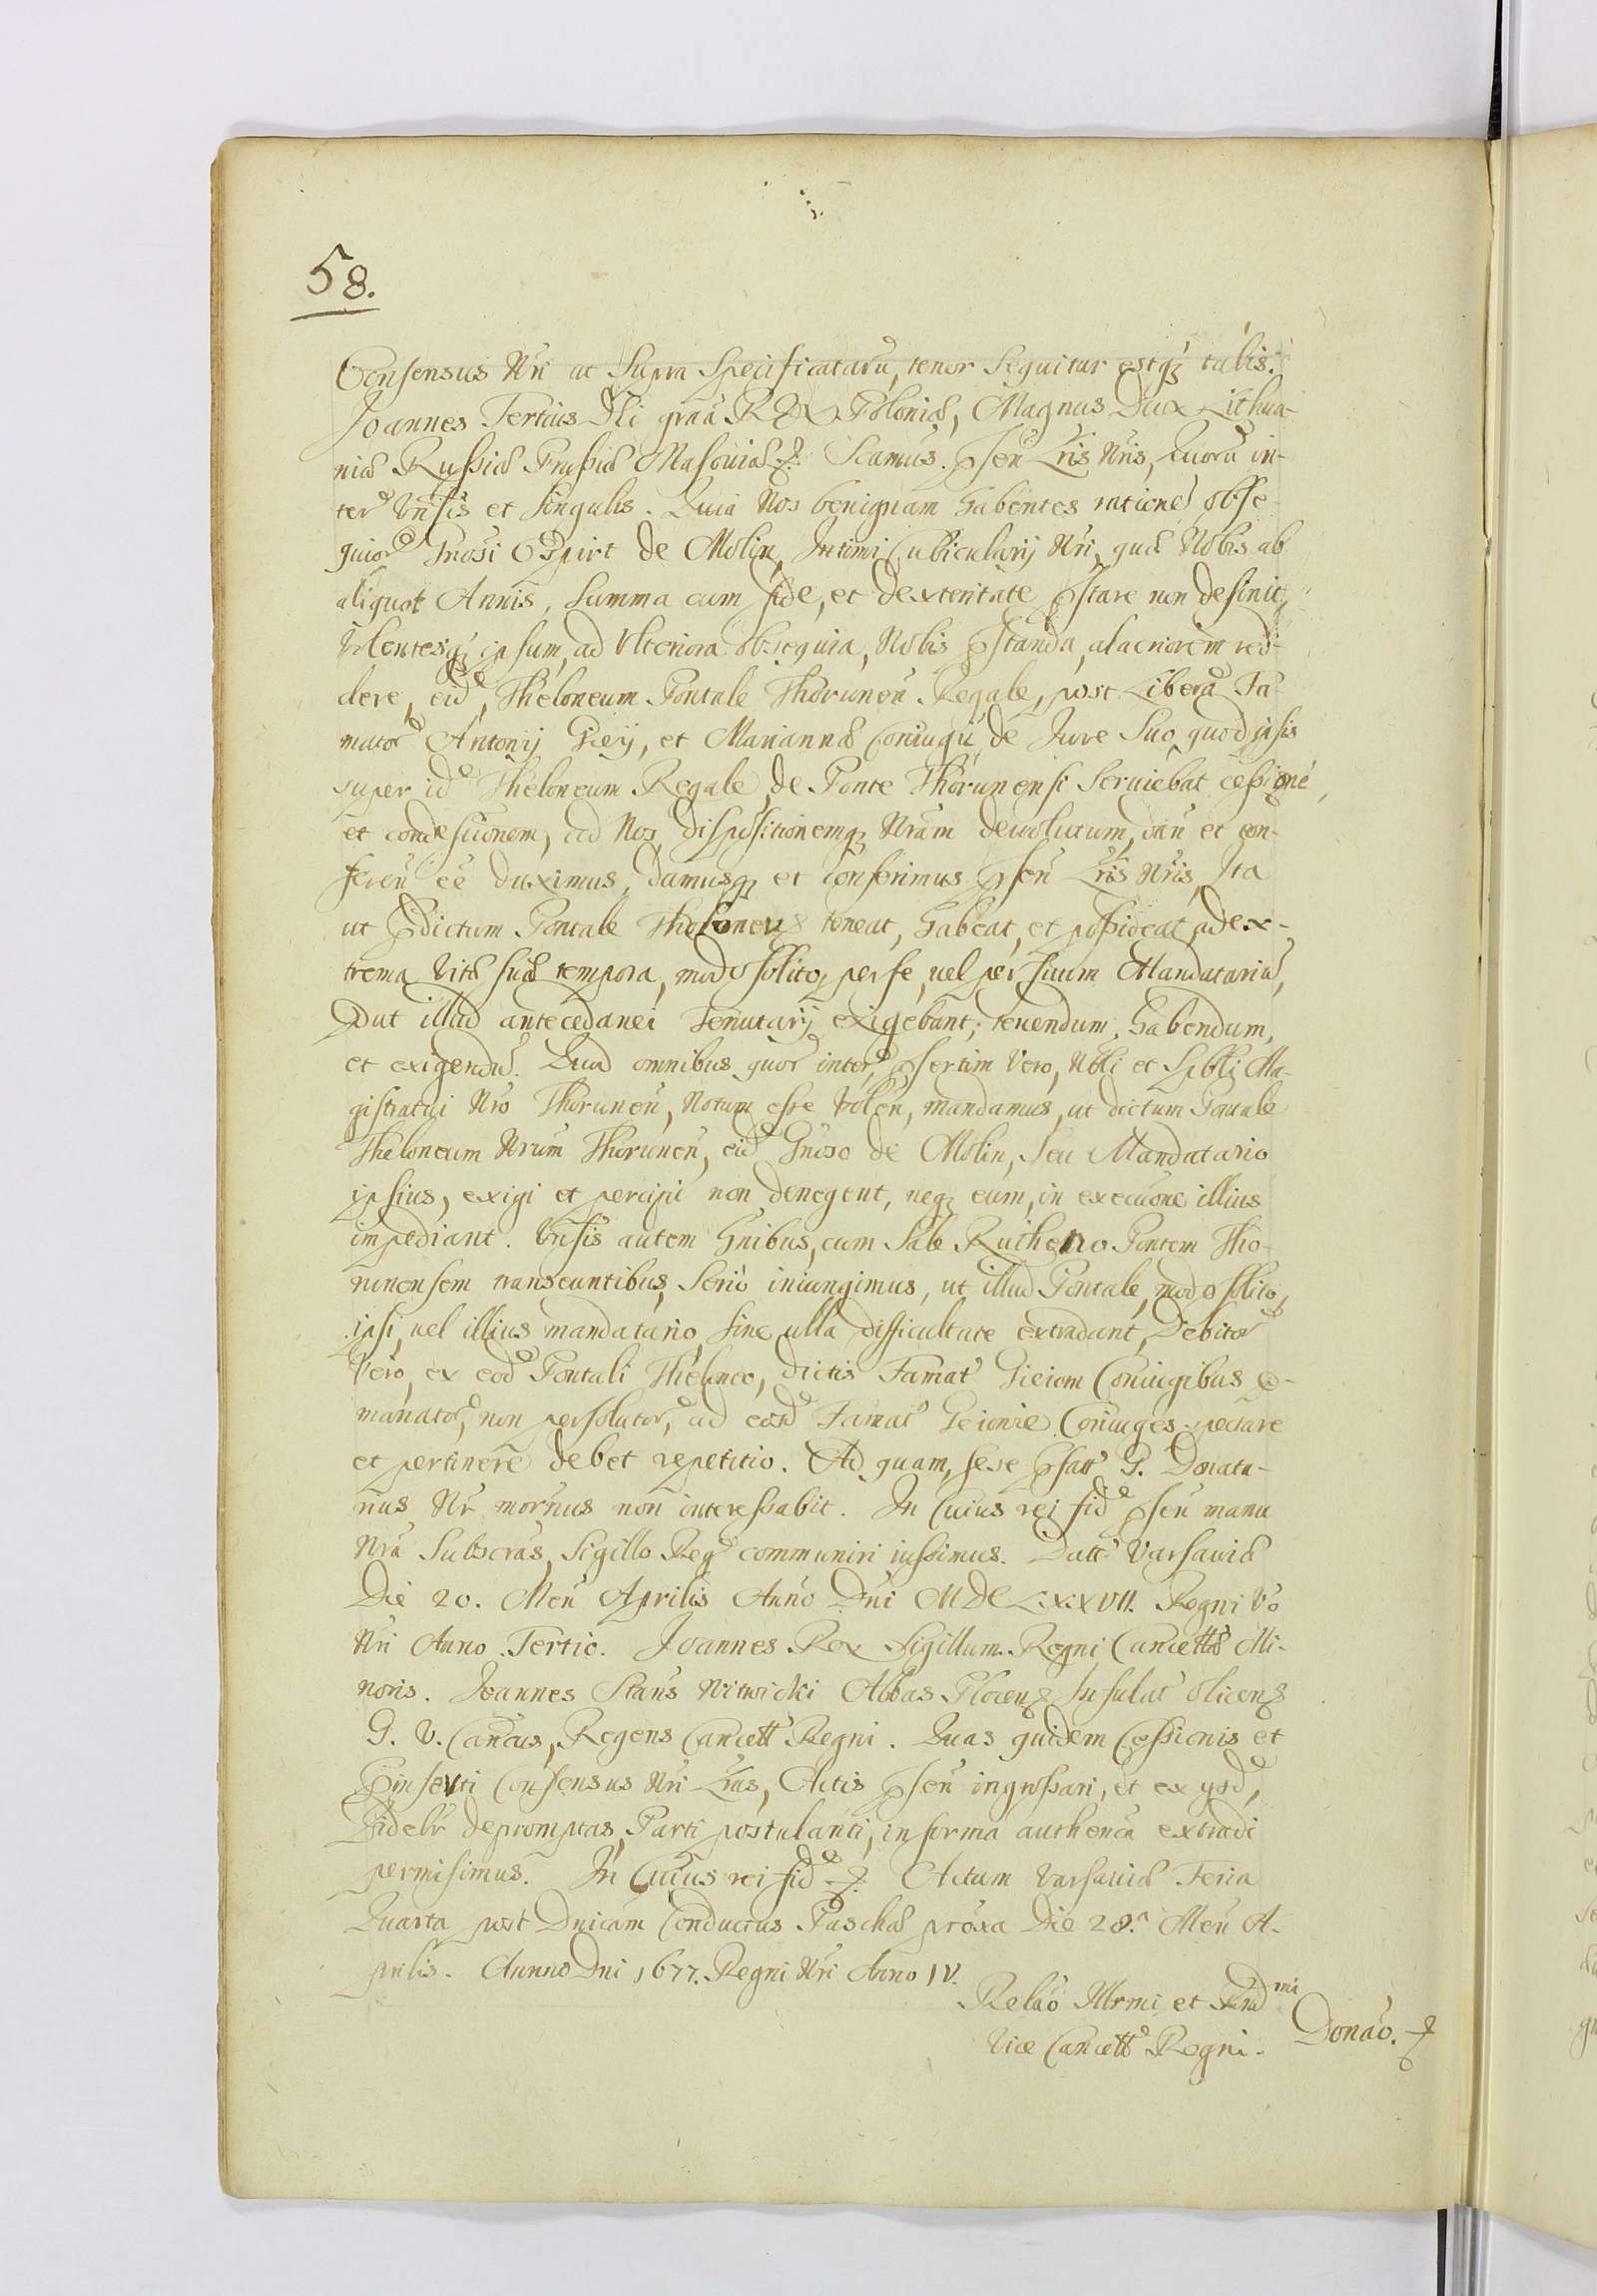 58.
Consensus Nri ut Supra Specificataru, tenor Sequitur estq; talis.
Joannes Tertius Dei grãa REX Poloniæ, Magnus Dux Lithua-
niæ Rußiæ Prußiæ Masouiæ &. Scamus. Psen Lris Nris, Quoru in-
ter Vnsis et Singulis. Quia Nos benignam habentes rationé obse-
quior Gnosi de Molin, Intimi Cubicularij Nri, quæ Nobis ab
aliquot Annis, Summa cum fide, et dexteritate pstare non desinit,
Volentesq; ipsum, ad Vlteriora obsequia, Nobis pstanda, alacriorem red-
dere, eid, Theloneum Pontale Thorunen Regale, post Liberã Fa-
mator Antonij Giey, et Mariannæ Coniugú de Jure Suo, quod ipsis
super id Theloneum Regale de Ponte Thorunensi Seruiebat, ceßioné,
et condescõonem, ad Nos, dispositionemq; Nram deuolutum, dan et con-
feren eé duximus, damusq; et conferimus psen Lris Nris, Ita
ut pdictum Pontale teneat, habeat, et poßideat, ad ex-
trema Vitæ suæ tempora, modo solito, per se, uel per suum Mandatariú,
put illud antecedanei Tenutarij exigebant; tenendum, habendum,
et exigendú. Quod omnibus quor inter, psertim Vero, Nbli et Spbli Ma-
gistratui Nro Thorunen, Notum esse Volen, mandamus, ut dictum Pontale
Theloneum Nrum Thorunen, eid Gnoso de Molin, Seu Mandatario
ipsius, exigi et percipi non denegent, neq; eum, in execuõone illius
impediant. Vnsis autem hnibus, cum Sale Rutheno Pontem Tho-
runensem transeuntibus, Serió iniungimus, ut illud Pontale, modo solito,
ipsi, uel illius mandatario, sine ulla difficultate extradant, Debitor
Vero, ex eod Pontali Theloneo, dictis Famat Coniugibus
manator, non persolutor, ad eosd Famat Coniuges spectare
et pertinere debet repetitio. Ad quam, sese psatt G. Donata-
rius Nr non intereßabit. In Cuius rei fid psen manu
Nra Subscras, Sigillo Reg communiri iußimus. Datt Varsauiæ
Die 20. Men Aprilis Anno Dni MDCLXXVII. Regni Vo
Nri Anno Tertio. Joannes Rex Sigillum Regni Cancettæ Mi-
noris. Joannes Stans Witwicki Abbas Plocen, Insulat
G. V. Cancus, Regens Cancett Regni. Quas quidem Ceßionis et
pinserti Consensus Nri Lras, Actis psen ingroßari, et ex ysd,
Fidelr depromptas, Parti postulanti, in forma authenca extradi
permisimus. In Cuius rei fid &. Actum Varsauiæ Feria
Quarta post Dnicam Conductus Paschæ proxa Die 28.a Men A-
prilis. Annno Dni 1677. Regni Nri Anno IV.
Relao Illrmi et Rnd mi
Vice Cancett Regni.
Donao. &